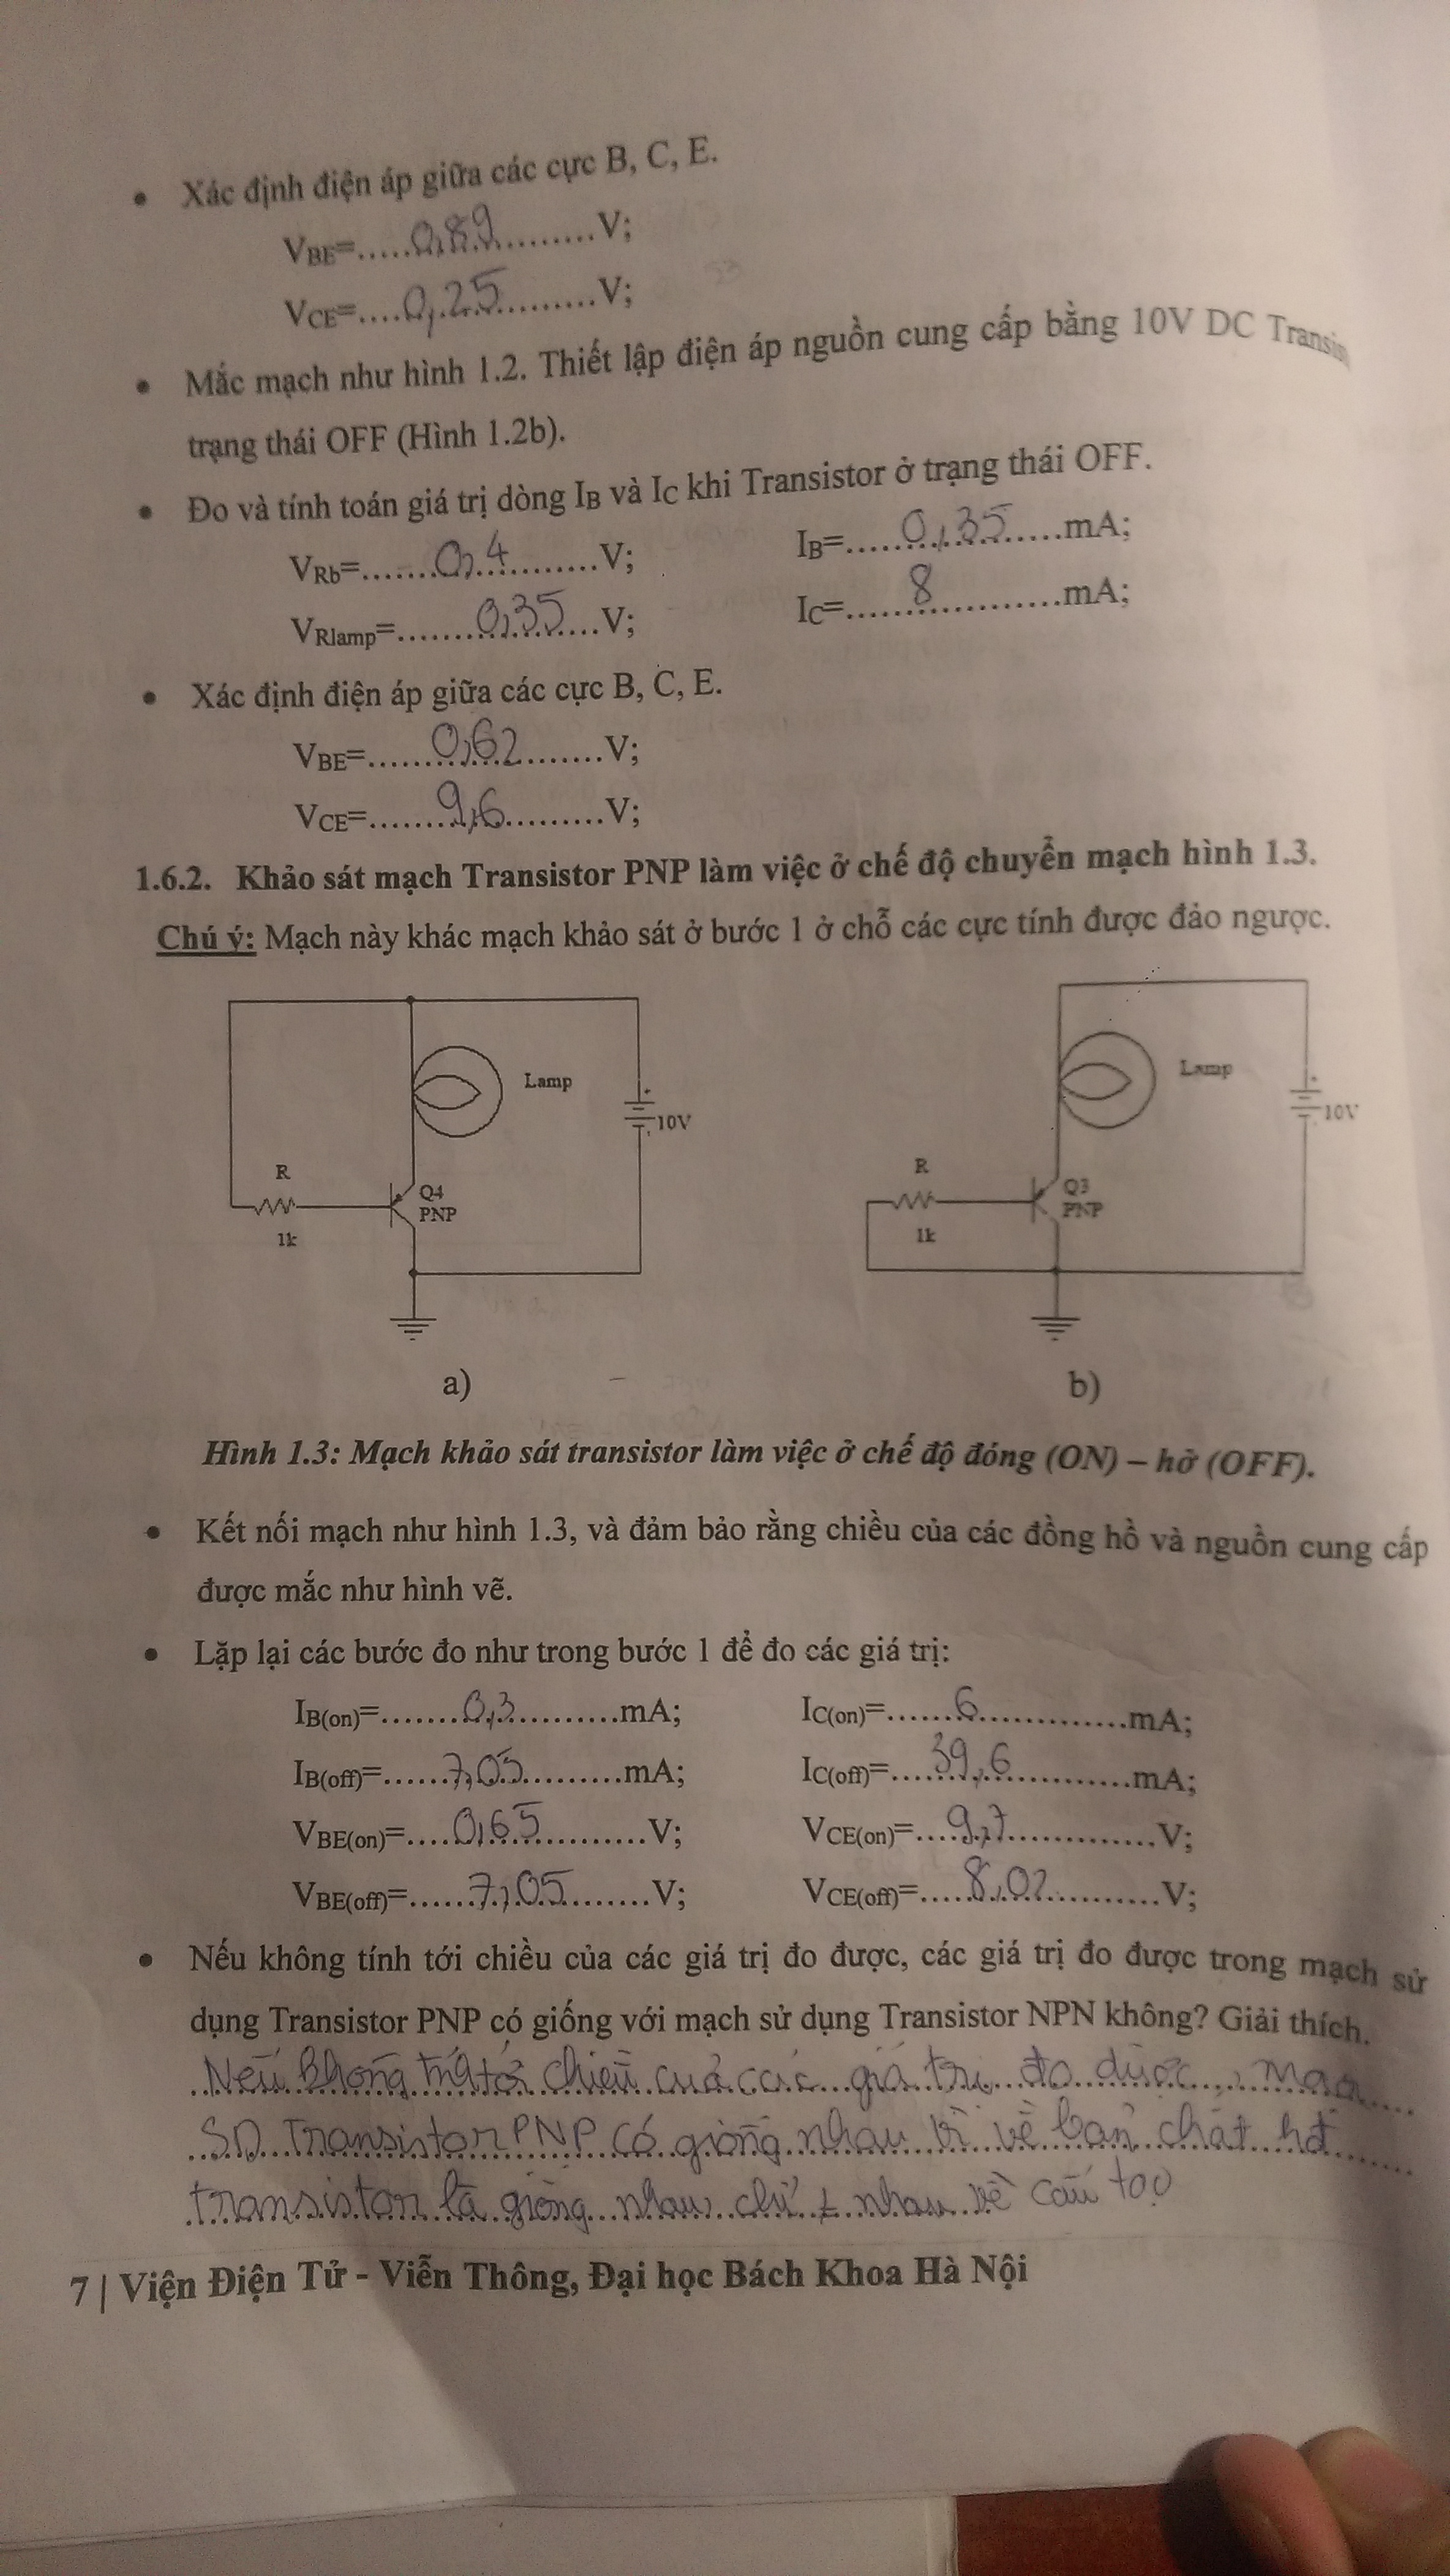 • Xác định điện áp giữa các cực B, C, E.
VBE=.....0,89..........V;
VCE=....0,25..........V;
• Mắc mạch như hình 1.2. Thiết lập điện áp nguồn cung cấp bằng 10V DC
trạng thái OFF (Hình 1.2b).
• Đo và tính toán giá trị dòng IB và IC khi Transistor ở trạng thái OFF.
VRb=.......0,4..........V; IB=.....0,35..........mA;
VRlamp=.......0,35.....V; IC=.......8..........mA;
• Xác định điện áp giữa các cực B, C, E.
VBE=.......0,62........V;
VCE=.......9,6..........V;
1.6.2. Khảo sát mạch Transistor PNP làm việc ở chế độ chuyển mạch hình 1.3.
Chú ý: Mạch này khác mạch khảo sát ở bước 1 ở chỗ các cực tính được đảo ngược.
Lamp
10V
R
Q4
PNP
1k
a)
Lamp
10V
R
Q3
PNP
1k
b)
Hình 1.3: Mạch khảo sát transistor làm việc ở chế độ đóng (ON) – hở (OFF).
• Kết nối mạch như hình 1.3, và đảm bảo rằng chiều của các đồng hồ và nguồn cung cấp
được mắc như hình vẽ.
• Lặp lại các bước đo như trong bước 1 để đo các giá trị:
IB(on)=.......0,3..........mA; IC(on)=......6..............mA;
IB(off)=......7,05..........mA; IC(off)=....39,6............mA;
VBE(on)=....0,65..........V; VCE(on)=....9,7..............V;
VBE(off)=......7,05........V; VCE(off)=.....8,02...........V;
• Nếu không tính tới chiều của các giá trị đo được, các giá trị đo được trong mạch sử
dụng Transistor PNP có giống với mạch sử dụng Transistor NPN không? Giải thích.
Nếu không tính tới chiều của các giá trị đo được, mạch
SD Transistor PNP có giống nhau vì về bản chất hđ
transistor là giống nhau, chỉ ≠ nhau về cấu tạo
7 | Viện Điện Tử - Viễn Thông, Đại học Bách Khoa Hà Nội